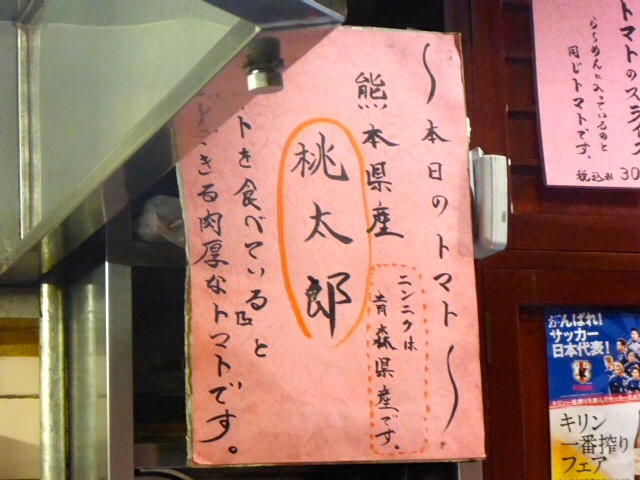 〜本日のトマト〜
熊本県産
桃太郎
ニンニクは
青森県産です。
トを食べていると
できる肉厚なトマトです。
トマトのスラ
らーめんに入っているのと
同じトマトです。
税込み 30
がんばれ!
サッカー
日本代表!
キリン
一番搾り
フェア